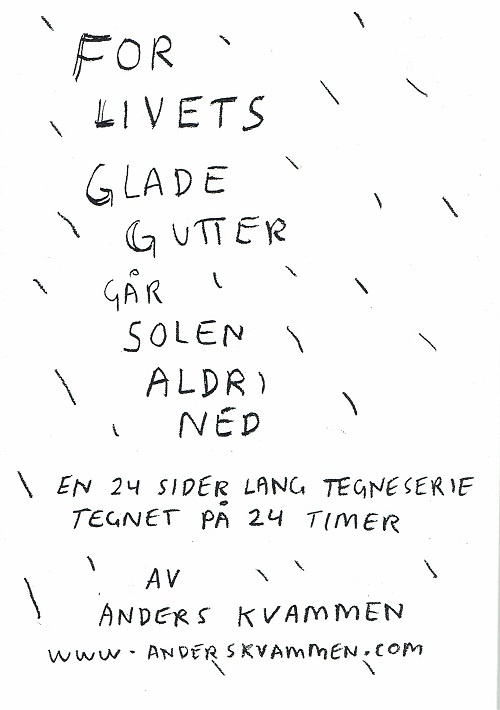 FOR
LIVETS
GLADE
GUTTER
GÅR
SOLEN
ALDRI
NED
EN 24 SIDER LANG TEGNESERIE
TEGNET PÅ 24 TIMER
AV
ANDERS KVAMMEN
WWW.ANDERSKVAMMEN.COM